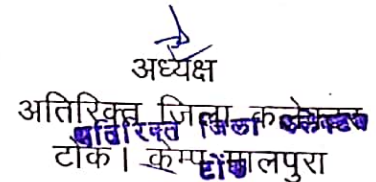 अध्यक्ष
अतिरिक्त जिला कलेक्टर
अतिरिक्त जिला कलेक्टर
टोंक। कैम्प मालपुरा
टोंक